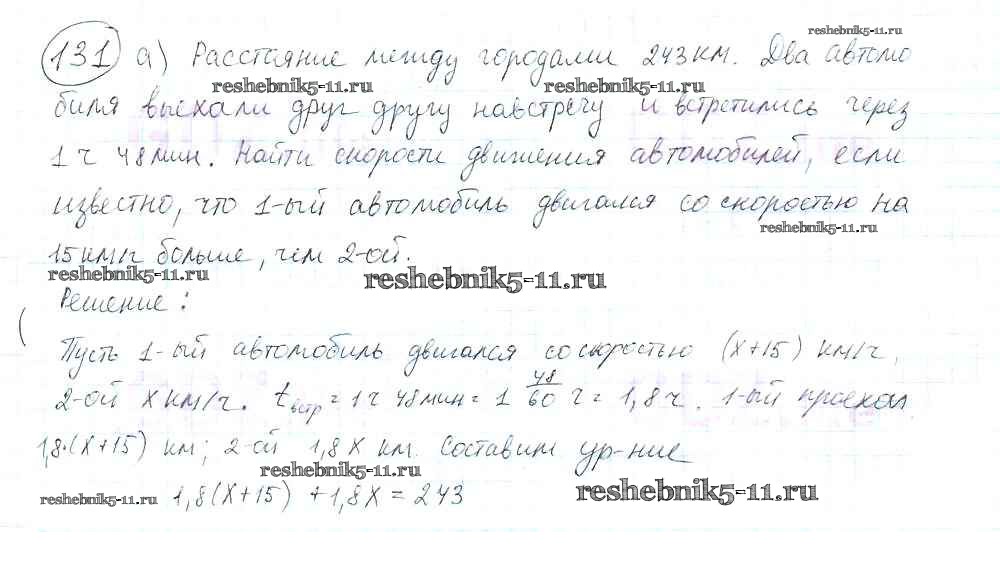 reshebnik5-11.ru
131 а) Расстояние между городами 243 км. Два автомо
reshebnik5-11.ru
reshebnik5-11.ru
биля выехали друг другу навстречу и встретились через
1 ч 48 мин. Найти скорости движения автомобилей, если
известно, что 1-ый автомобиль двигался со скоростью на
15 км/ч больше, чем 2-ой.
reshebnik5-11.ru
reshebnik5-11.ru
Решение:
Пусть 1-ый автомобиль двигался со скоростью (x+15) км/ч,
2-ой x км/ч. tвстр = 1 ч 48 мин = 1 48/60 ч = 1,8 ч. 1-ый проехал
1,8·(x+15) км; 2-ой 1,8x км. Составим ур-ние
reshebnik5-11.ru
reshebnik5-11.ru
1,8(x+15) + 1,8x = 243
reshebnik5-11.ru